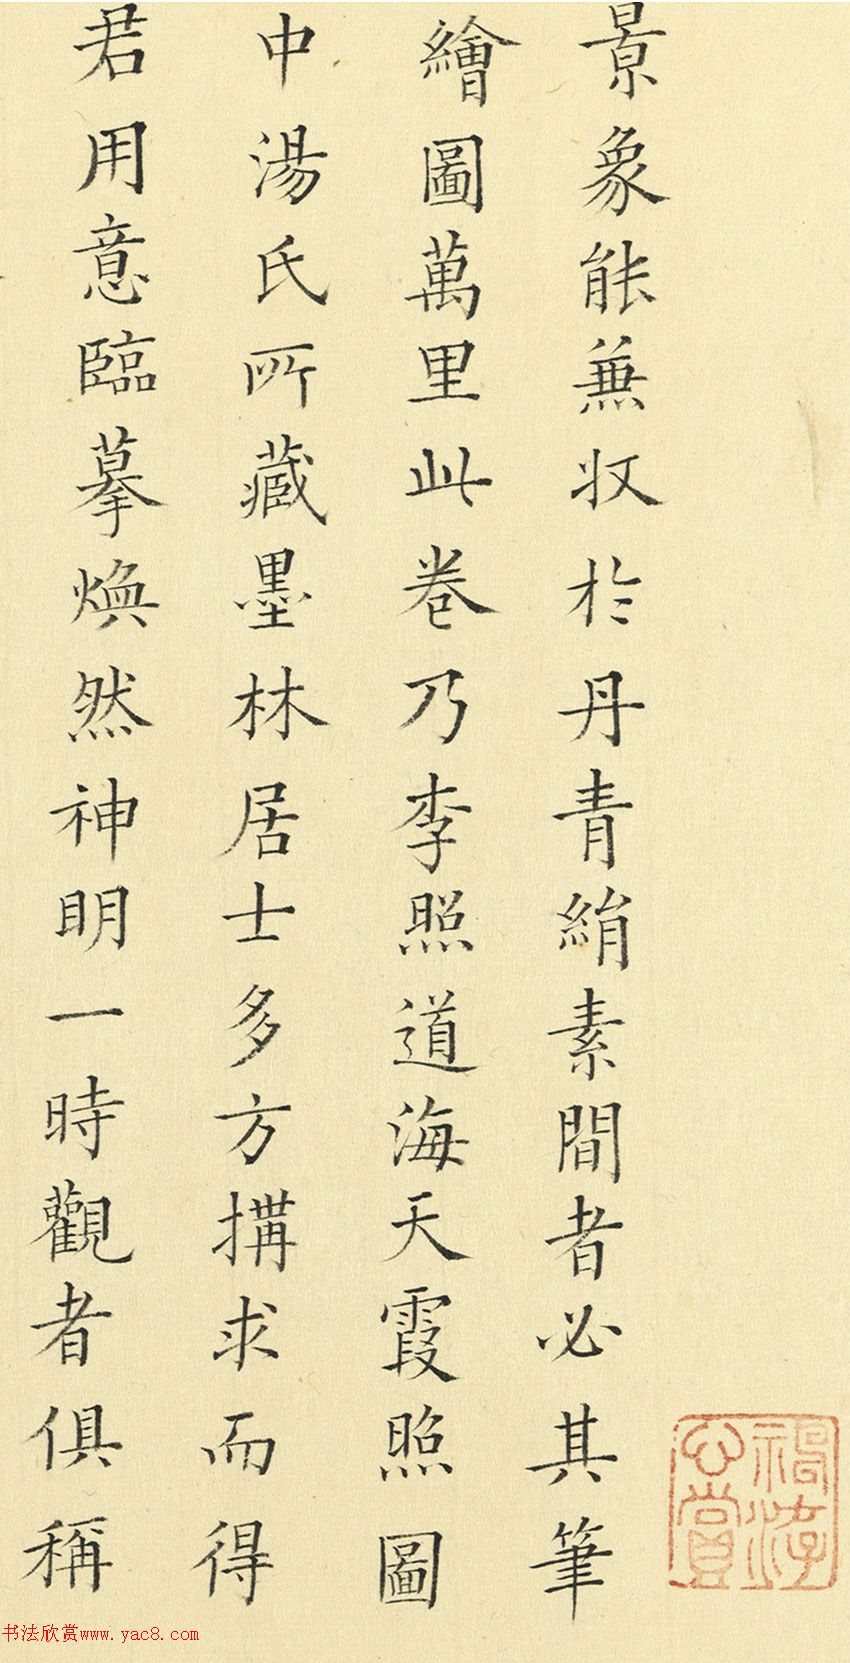 景象能蕪収於丹青絹素間者必其筆
繪圖萬里此卷乃李照道海天霞照圖
中湯氏所藏墨林居士多方搆求而得
君用意臨摹煥然神明一時觀者俱稱
公賞
书法欣赏www.yac8.com